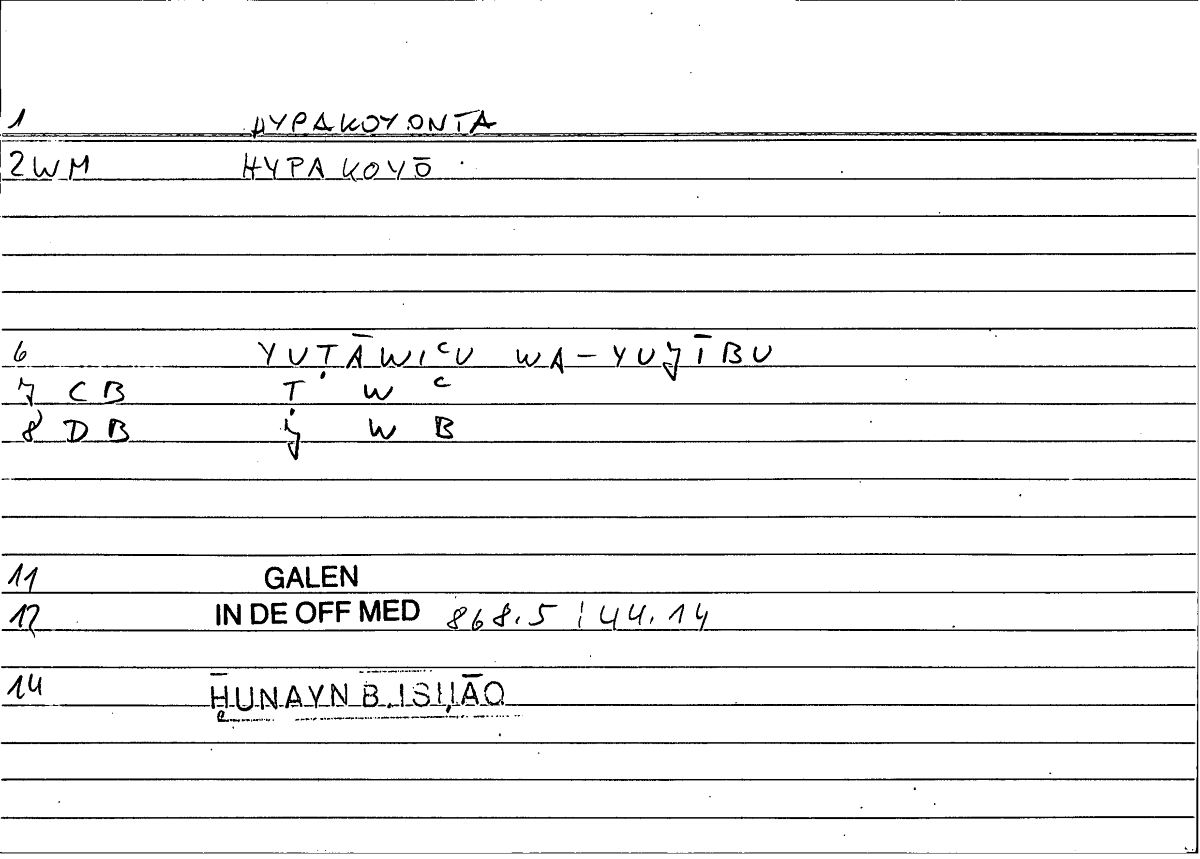 1 HYPAKOYONTA
2WM HYPAKOYŌ
6 YUṬĀWIᶜU WA-YUǧĪBU
7 CB Ṭ W ᶜ
8 DB ǧ W B
11 GALEN
12 IN DE OFF MED 868.5 / 44.14
14 ḤUNAYN B. ISḤĀQ